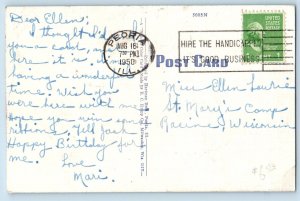 Dear Ellen:
I thought I'd send
you a card, so
here it is. I am
having a wonderful
time. Wish you
were here with me.
Hope you win some
ribbons. Tell Jack
Happy Birthday for
me.
Love
Mari.
PEORIA
AUG 18
7 PM
1950
ILL.
5608N
POST CARD
HIRE THE HANDICAPPED
IT'S GOOD BUSINESS
UNITED STATES
POSTAGE
Miss Ellen
St. Mary's Camp
Racine, Wisconsin